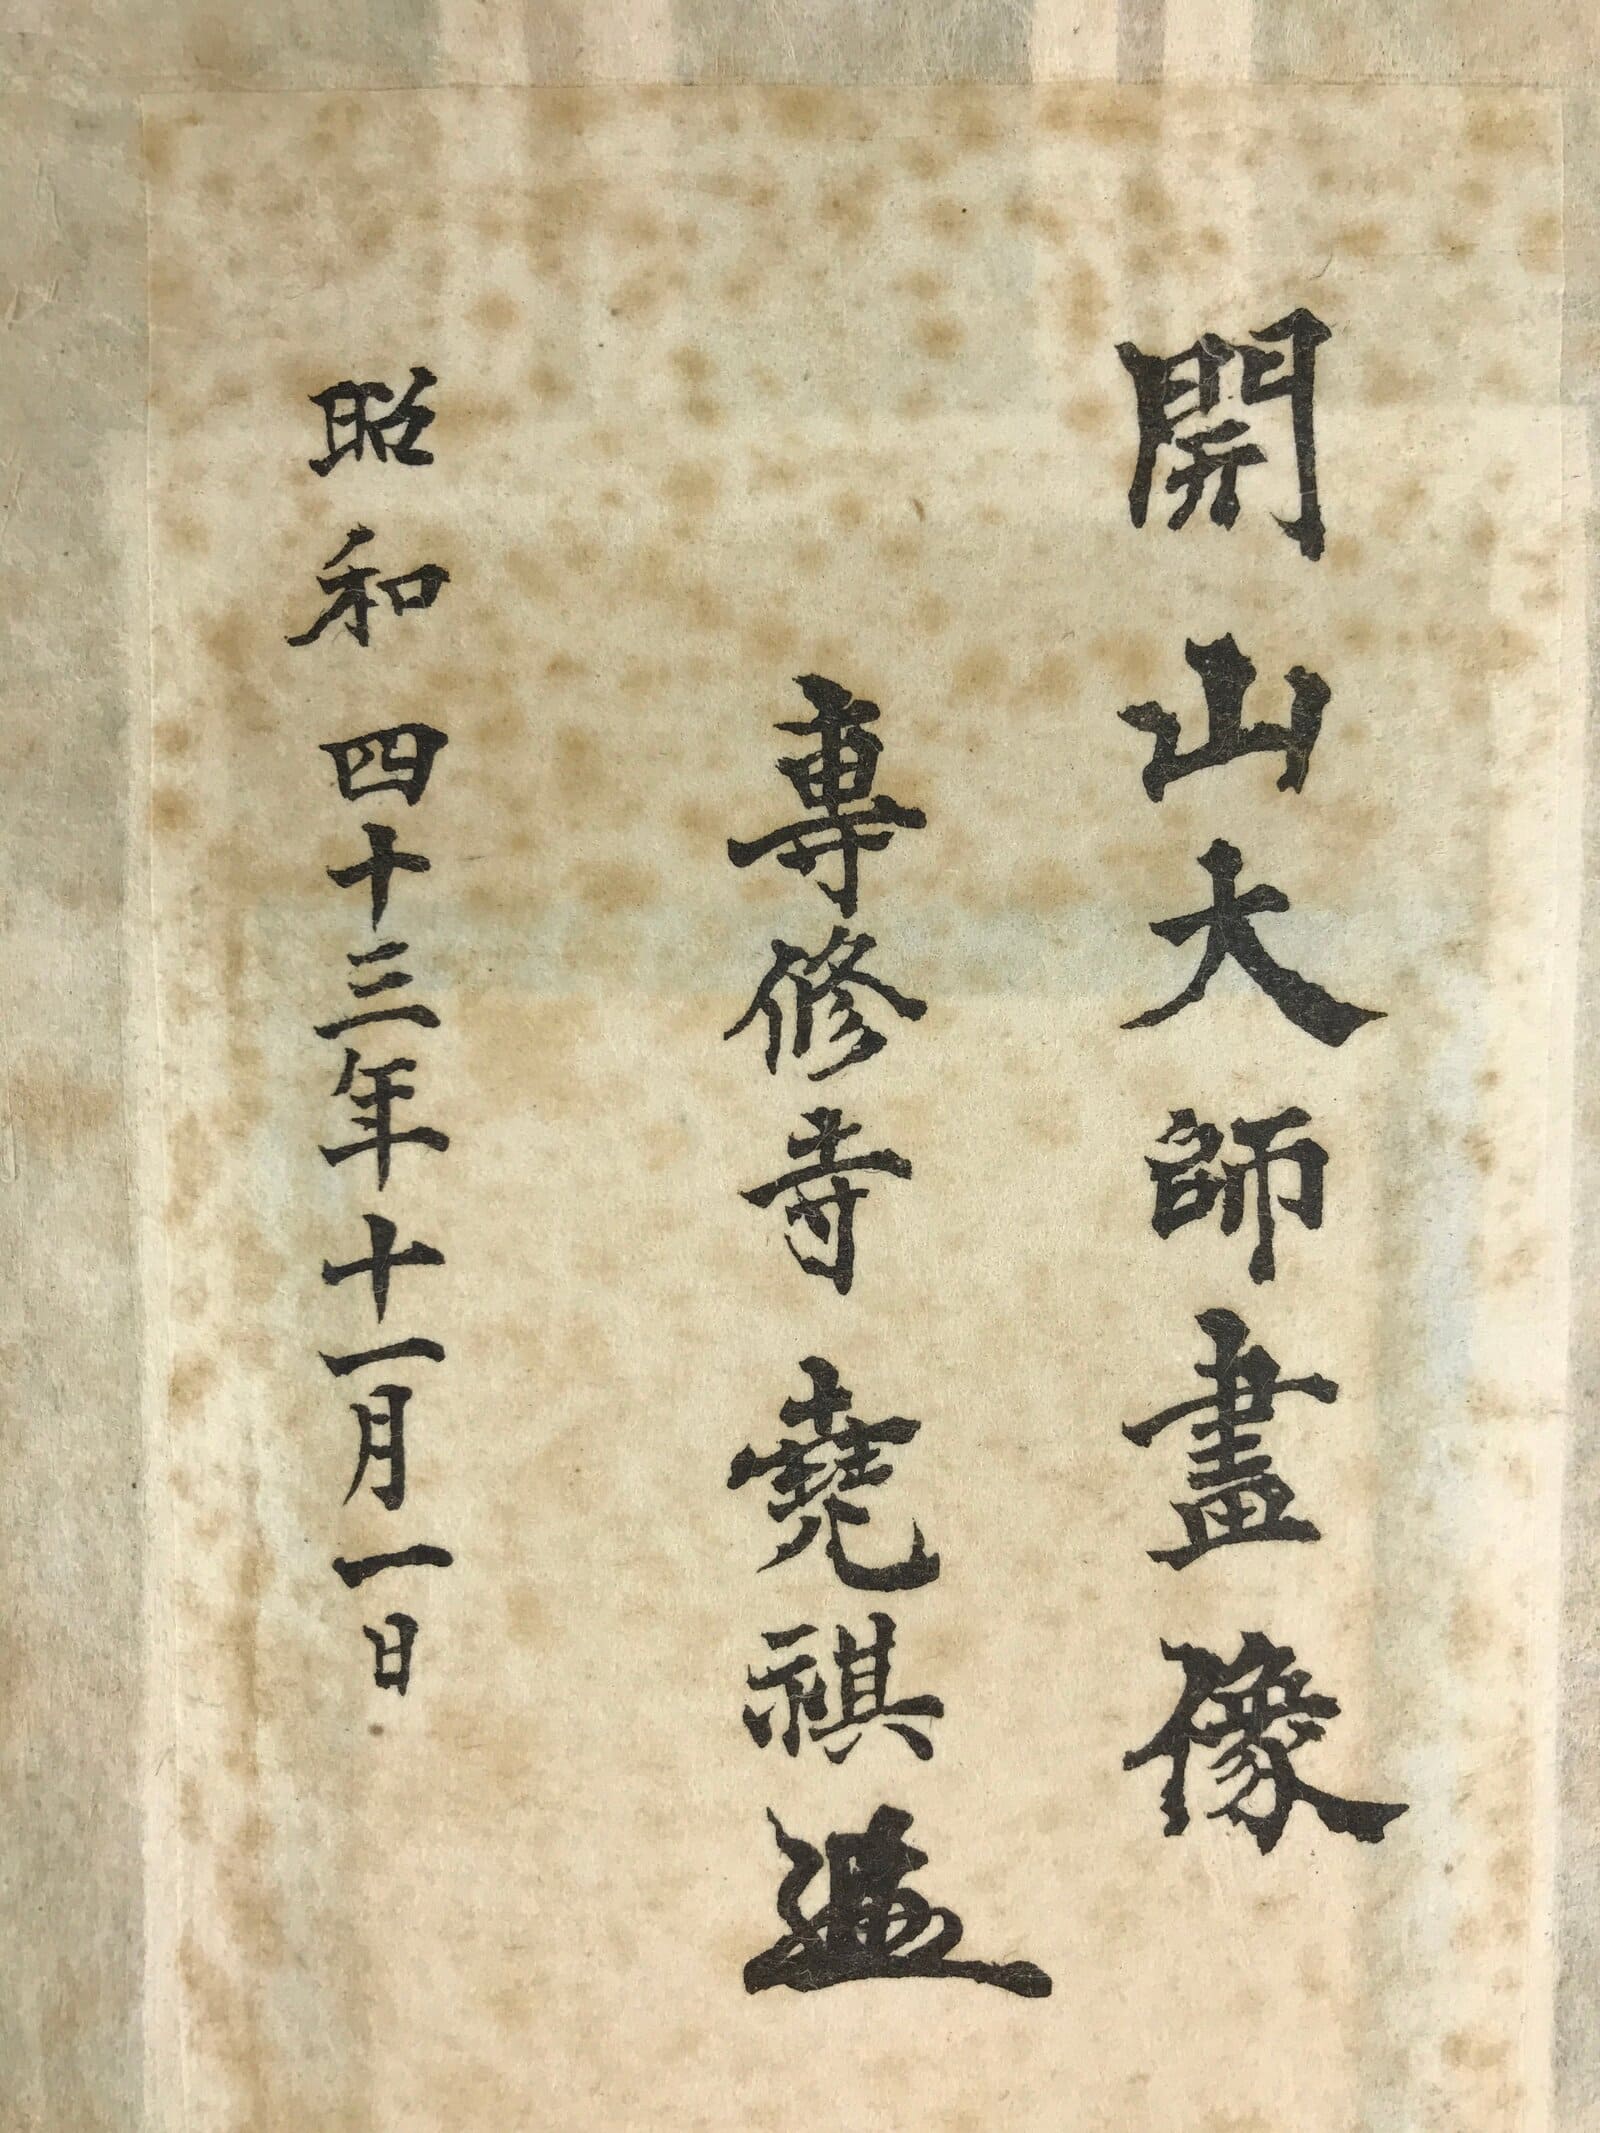 開山大師畫像
専修寺 堯祺
昭和四十三年十一月一日